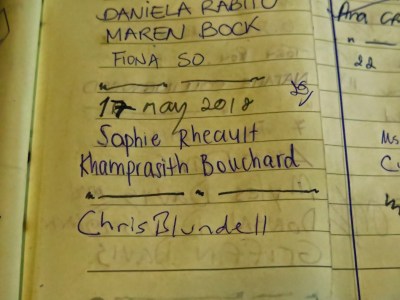 DANIELA RABITO
MAREN BOCK
FIONA SO
17 may 2018
Sophie Rheault
Khamprasith Bouchard
Chris Blundell
Ana
22
Ms